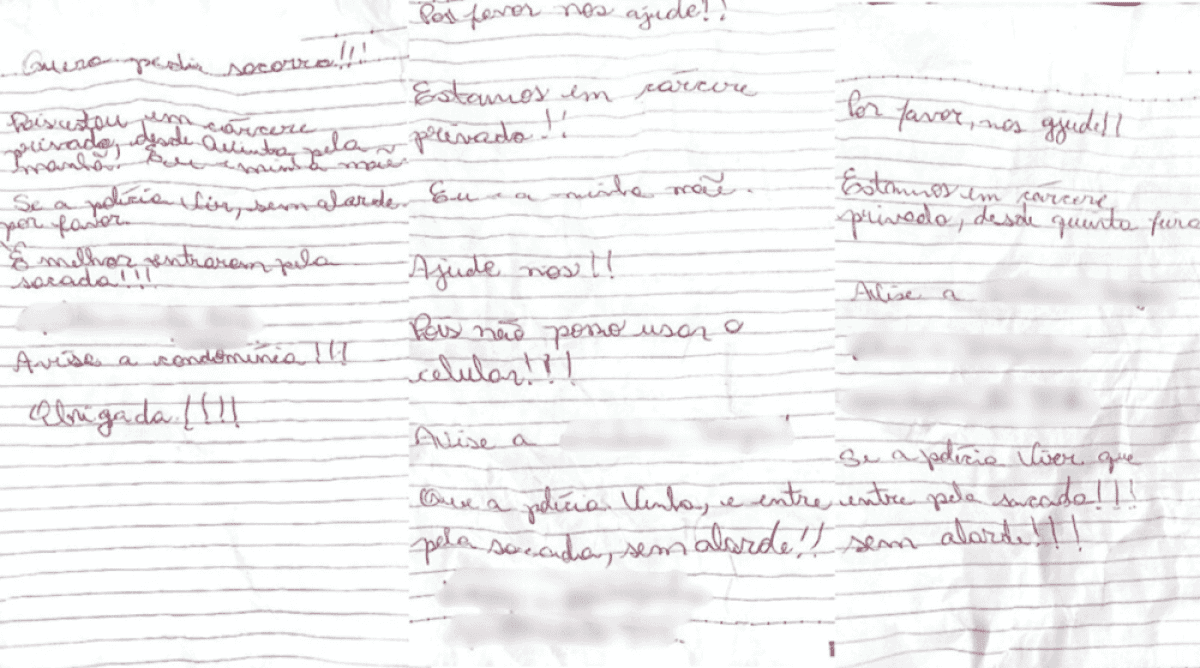 Quero pedir socorro!!!
Pois estou em cárcere
privado, desde Quinta pela
manhã. Eu e minha mãe
Se a polícia vir, sem alarde
por favor.
É melhor entrarem pela
sacada!!!
Avise a condominia!!!
Obrigada!!!!!
Por favor nos ajude!!
Estamos em cárcere
privado!!
Eu e a minha mãe.
Ajude nos!!
Pois não posso usar o
celular!!!
Avise a
Que a polícia venha, e entre
pela sacada, sem alarde!!
Por favor, nos ajude!!
Estamos em cárcere
privado, desde quinta feira
Avise a
Se a polícia vier que
entre pela sacada!!!
sem alarde!!!